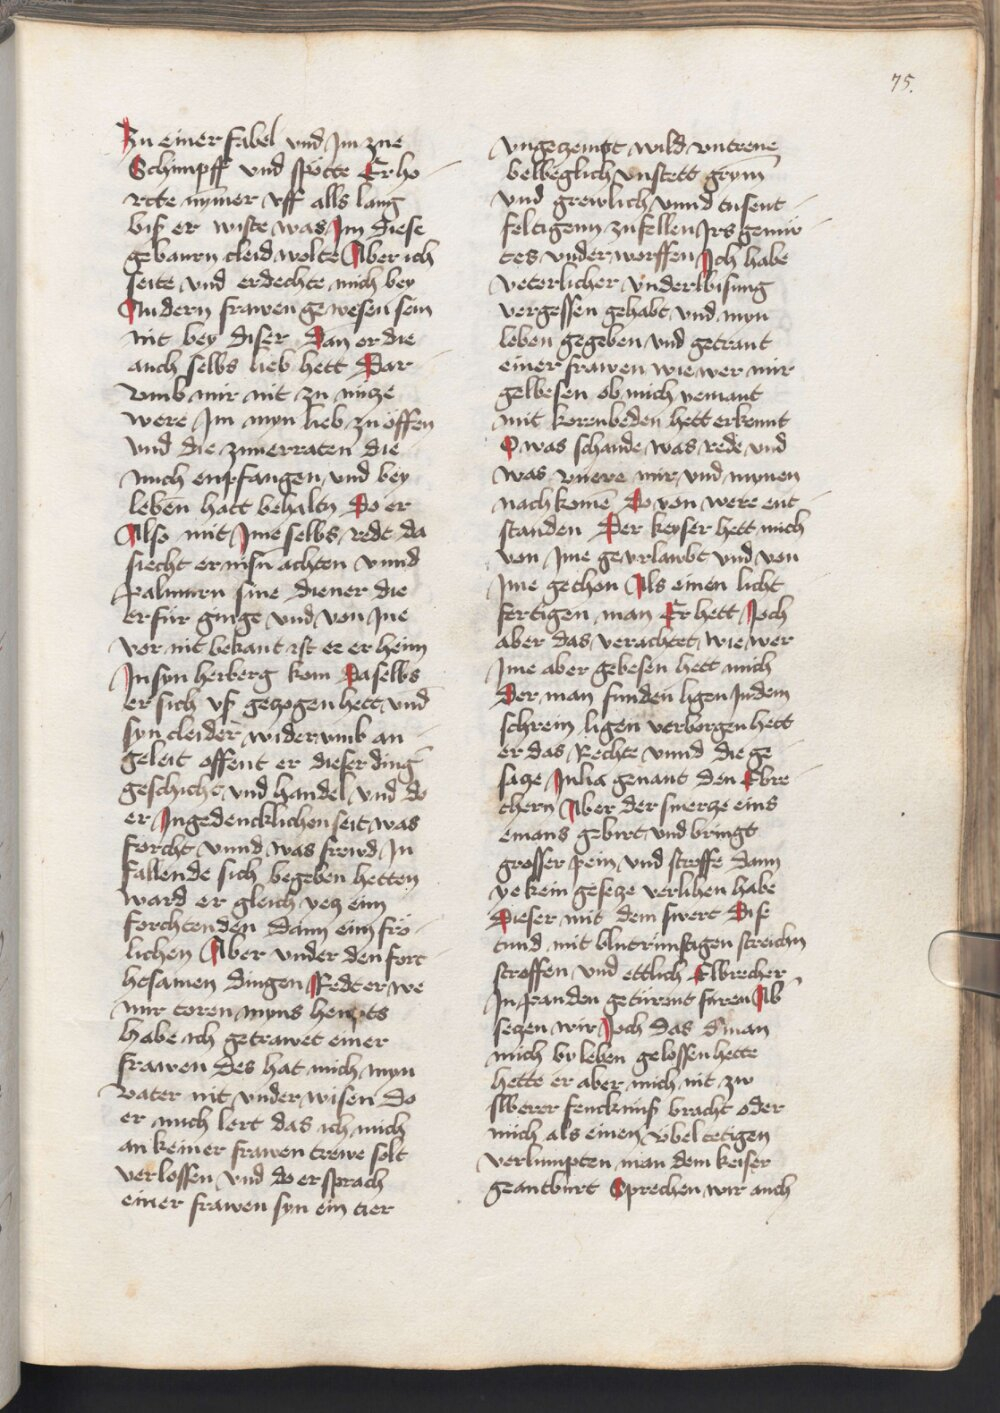 75.
Zu einer fabel vnd Im zue
Schimpff vnd spötte Er ho
rete nymer vff alls lang
biß er wiste was Im diese
gebaurn cleid wolte Aber ich
seite vnd erdechte mich bey
Andern frawen gewesen sein
nit bey diser Dan er die
auch selbs lieb hett Dar
vmb mir nit zu nucze
were Im myn lieb zu öffen
vnd die zuuerraten die
mich enpfangen vnd bey
leben hatt behaltn Do er
Also mit Ime selbs redt da
siecht er nisu achten vnnd
palinurn sine diener die
er für ginge vnd von Ine
vor nit bekant ist ee er heim
In syn herberg kom Daselbs
er sich vß geczogen hett vnd
syn cleider widerumb an
geleit offent er dieser ding
geschicht vnd handel vnd do
er Ingedencklichen seit was
forcht vnnd was frowd In
fallende sich begeben hetten
ward er gleich yecz eim
forchtenden dann eim frö
lichen Aber vnder den forc
htsamen dingen Redt er we
mir toren myns
habe ich getrawet einer
frawen des hat mich myn
vater nit vnder wisen Do
er mich lert das ich mich
an keiner frawen trewe solt
verlossen vnd do er sprach
einer frawen syn ein tier
vngeczempt wild vntreue
belbeglich vnstett grym
vnd grewlich vnnd tusent
feltigenn zufellen Irs gemü
tes vnderworffen Ich habe
veterlicher vnderlbisung
vergessen gehabt vnd myn
leben gegeben vnd getraut
einer frawen wie wer mir
gelbesen ob mich yemant
mit korenbeden hett erkennt
O was schande was rede vnd
was vnere mir vnd mynen
nachkomē Do von were ent
standen Der keyser hett mich
von Ime gevrlawbt vnd von
Ime gethon Als einen licht
fertigen man Er hett Joch
aber das verachtet wie wer
Ime aber gebesen hett mich
Der man funden ligen Indem
schrein ligen verborgen hett
er das Rechte vnnd die ge
sacze Julia genant den Ebre
chern Aber der smercze eins
emans gebirt vnd bringt
grosser pein vnd stroffe dann
ye kein gesecze verlihen habe
Dieser mit dem swert Dise
tund mit blutrünstigen streichn
stroffen vnd ettlich Elbrecher
In panden getürmt füren Ab
seczen wir Joch das d'man
mich by leben gelossen hette
hette er aber mich nit zw
slberer fencknuß bracht oder
mich als einen vbeltetigen
verlumpten man dem keiser
geantburt Sprechen wir auch